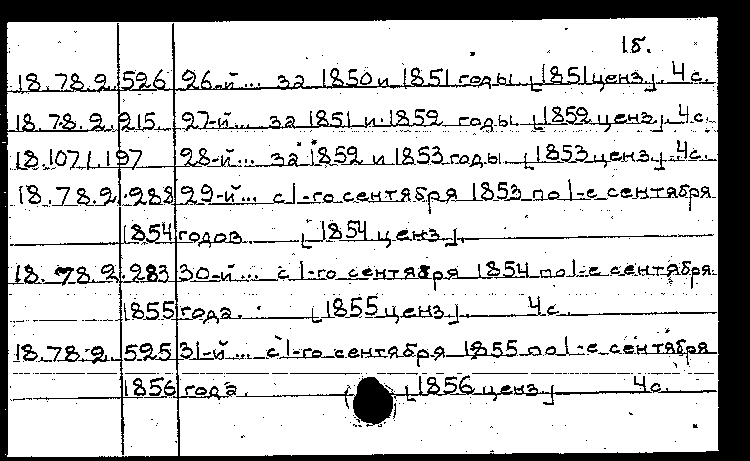 1б.
18.78.2.526 26-й... за 1850 и 1851 годы. [1851 ценз]. 4с.
18.78.2.215 27-й... за 1851 и 1852 годы. [1852 ценз]. 4с.
18.107/1.197 28-й... за 1852 и 1853 годы. [1853 ценз]. 4с.
18.78.2.288 29-й... с 1-го сентября 1853 по 1-е сентября
1854 годов [1854 ценз].
18.78.2.283 30-й... с 1-го сентября 1854 по 1-е сентября
1855 года. [1855 ценз]. 4с.
18.78.2.525 31-й... с 1-го сентября 1855 по 1-е сентября
1856 года. [1856 ценз] 4с.